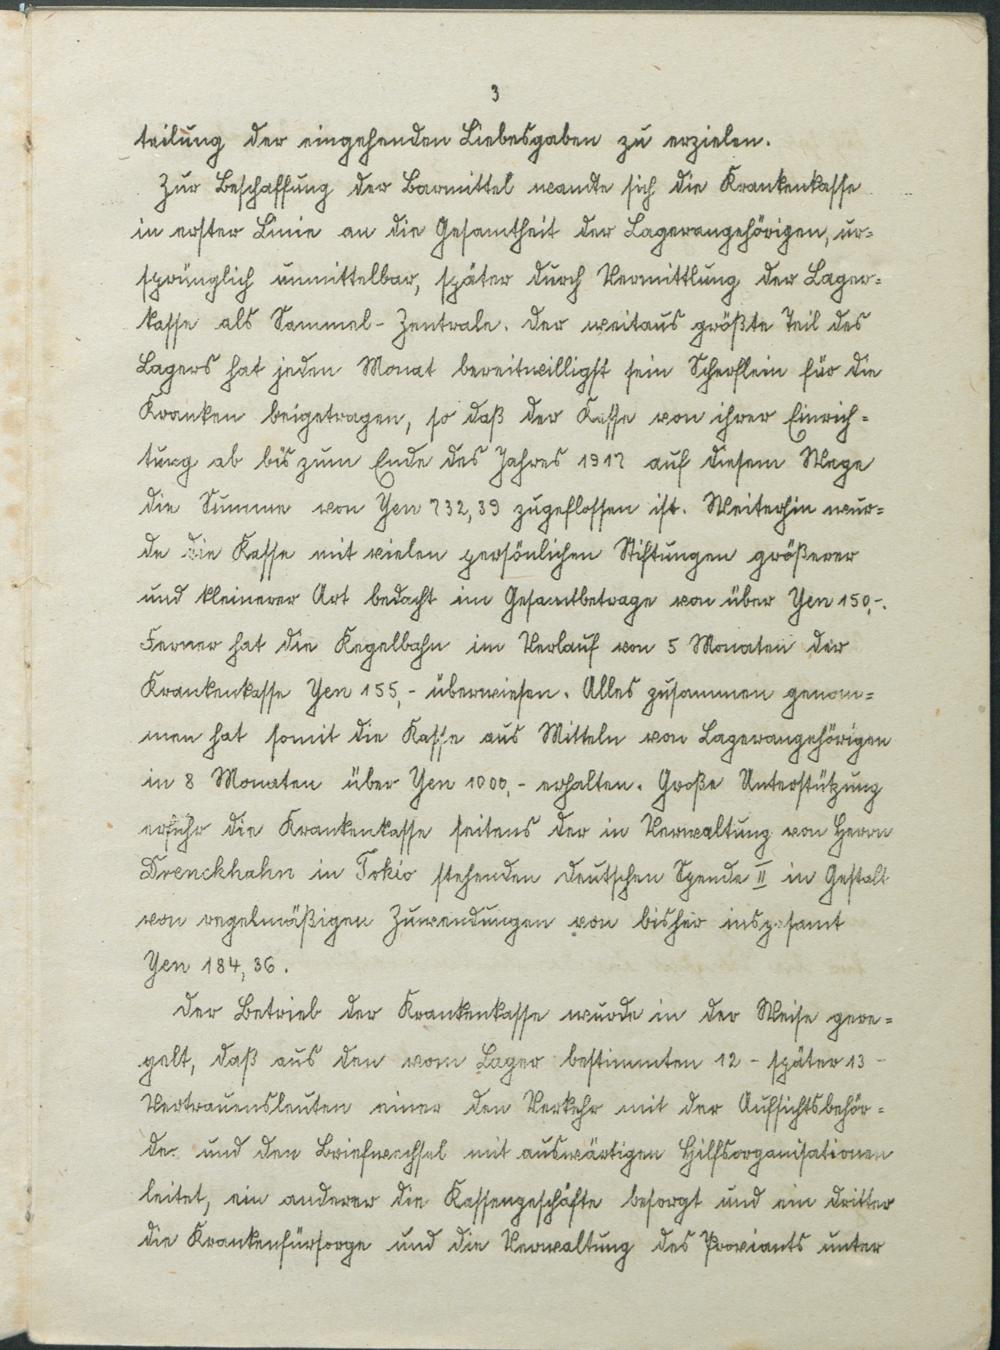 3
teilung der eingehenden Liebesgaben zu erzielen.
Zur Beschaffung der Barmittel wandte sich die Krankenkasse
in erster Linie an die Gesamtheit der Lagerangehörigen, ur=
sprünglich unmittelbar, später durch Vermittlung der Lager=
kasse als Sammel-Zentrale. Der weitaus größte Teil des
Lagers hat jeden Monat bereitwilligst sein Scherflein für die
Kranken beigetragen, so daß der Kasse von ihrer Einrich=
tung ab bis zum Ende des Jahres 1917 auf diesem Wege
die Summe von Yen 732,39 zugeflossen ist. Weiterhin wur=
de die Kasse mit vielen persönlichen Stiftungen größerer
und kleinerer Art bedacht im Gesamtbetrage von über Yen 150,-.
Ferner hat die Kegelbahn im Verlauf von 5 Monaten der
Krankenkasse Yen 155,- überwiesen. Alles zusammen genom=
men hat somit die Kasse aus Mitteln von Lagerangehörigen
in 8 Monaten über Yen 1000,- erhalten. Große Unterstützung
erfuhr die Krankenkasse seitens der in Verwaltung von Herrn
Drenckhahn in Tokio stehenden deutschen Spende II in Gestalt
von regelmäßigen Zuwendungen von bisher insgesamt
Yen 184,36.
Der Betrieb der Krankenkasse wurde in der Weise gere=
gelt, daß aus den vom Lager bestimmten 12 - später 13 -
Vertrauensleuten einer den Verkehr mit der Aufsichtsbehör=
de und den Briefwechsel mit auswärtigen Hilfsorganisationen
leitet, ein anderer die Kassengeschäfte besorgt und ein dritter
die Krankenfürsorge und die Verwaltung des Proviants unter